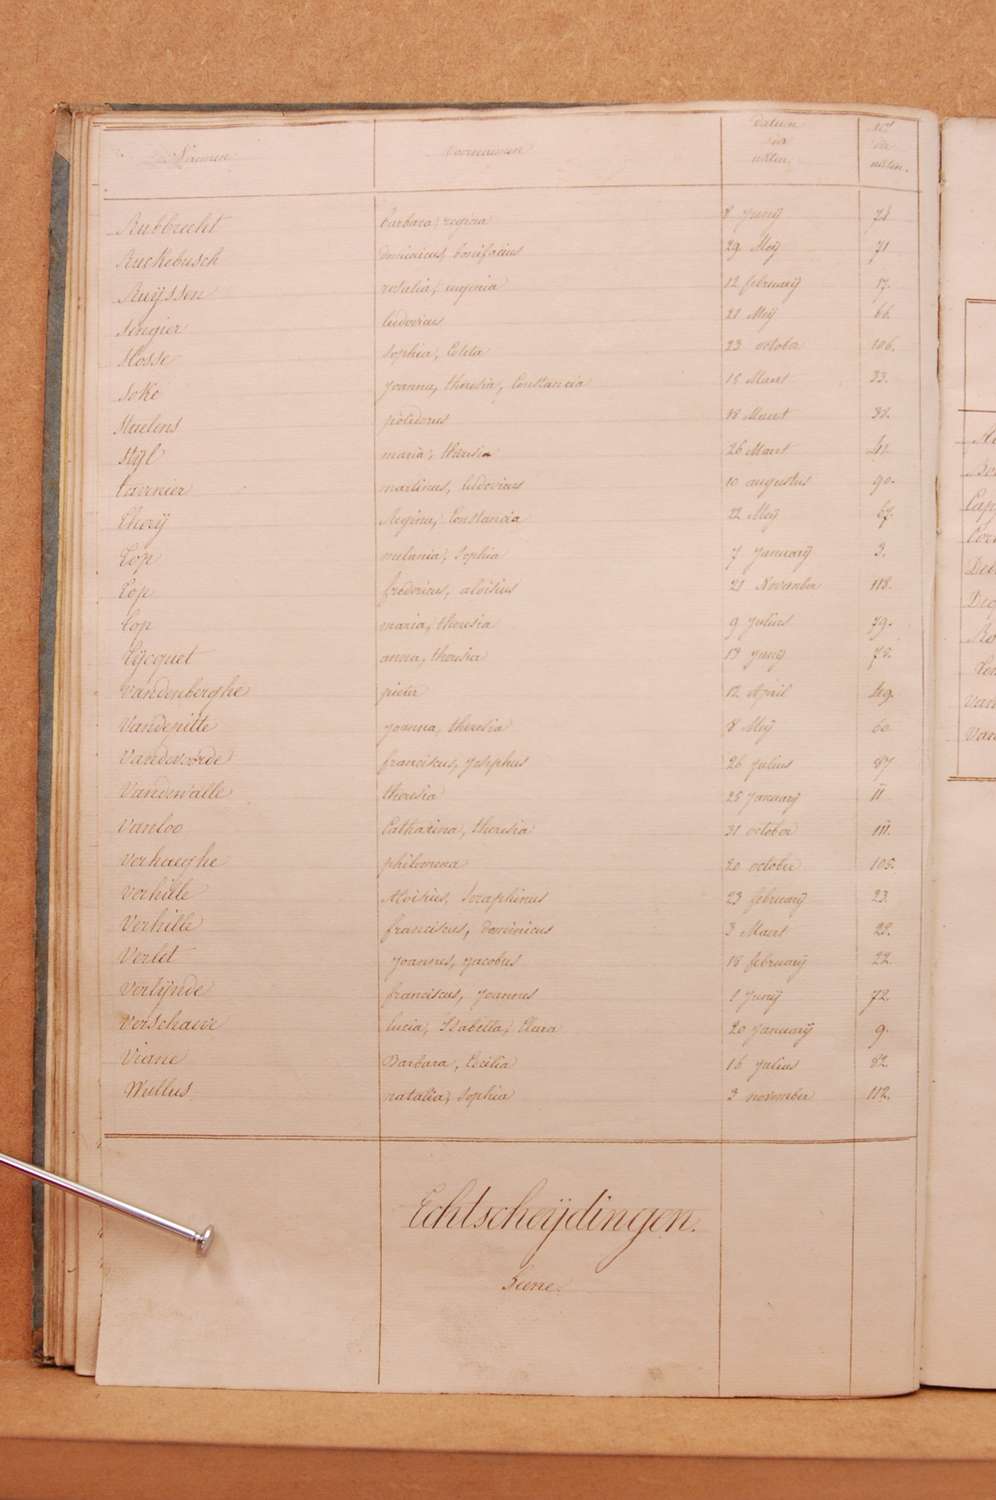 Naamen Voornaamen Datum der acten Nos der acten.
Rubbrecht barbara, regina 8 Junij 74
Ruckebusch dominicus, bonifacius 29 Meij 71
Ruijssen rosalia, eugenia 12 februarij 17.
Sengier ludovicus 21 Meij 66.
Slosse Sophia, Coleta 23 october 106.
Soke joanna, theresia, Constancia 15 Maert 33.
Staelens polidorus 18 Maert 38.
Stijl maria, theresia 26 Maert 41.
tavernier martinus, ludovicus 10 augustus 90.
Therij Regina, Constancia 22 Meij 67.
Top melania, Sophia 7 Januarij 3.
Top fredericus, aloisius 21 November 118.
Top maria, theresia 9 Julius 79.
Tijcquet anna, theresia 13 Junij 75.
Vandenberghe pieter 12 April 49.
Vandepitte joanna, theresia 8 Meij 60
Vandevoorde franciscus, josephus 26 Julius 87
Vandewalle theresia 25 Januarij 11
Vanloo Catharina, theresia 31 october 111.
Verhaeghe philomena 20 october 105.
Verhille Aloisius, Seraphinus 23 februarij 23.
Verhille franciscus, dominicus 3 Maert 28.
Verlet Joannes, jacobus 18 februarij 22.
Verlijnde franciscus, Joannes 1 Junij 72.
Verschaeve lucia, Isabella, Clara 20 Januarij 9.
Viane Barbara, Cecilia 16 Julius 82
Wullus natalia, Sophia 3 november 112.
Echtscheijdingen.
Geene.